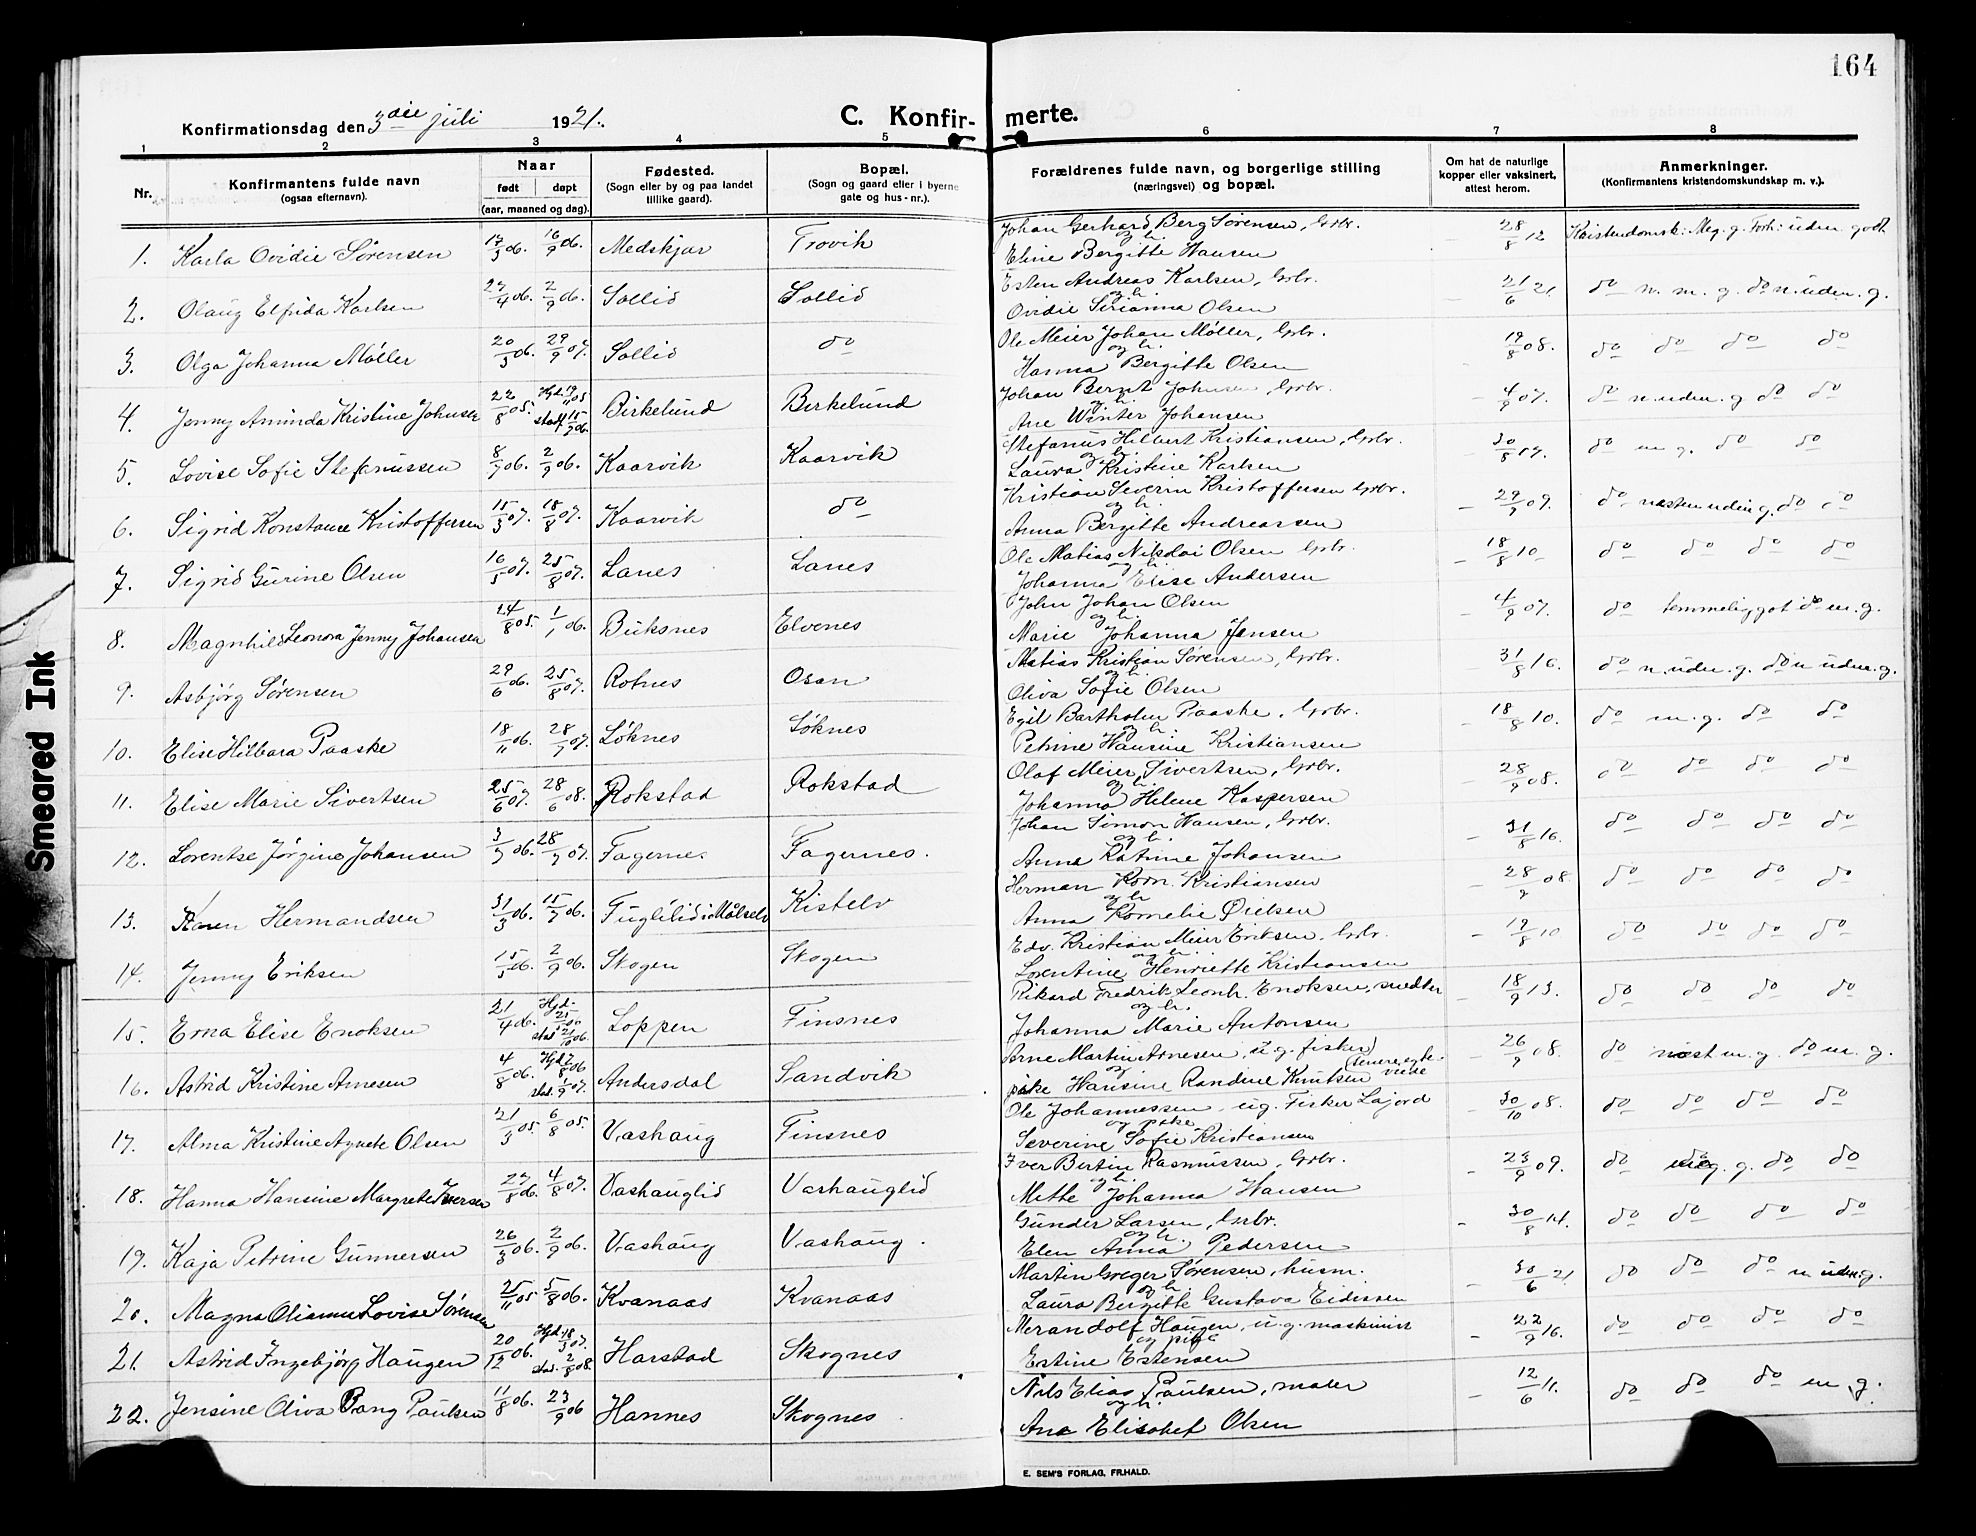 164
Konfirmationsdag den 3die juli 1921.
C. Konfirmerte.
1 2 3 4 5 6 7 8
Nr.
Konfirmantens fulde navn
(ogsaa efternavn).
Naar
født døpt
(aar, maaned og dag).
Fødested.
(Sogn eller by og paa landet
tillike gaard).
Bopæl.
(Sogn og gaard eller i byerne
gate og hus-nr.).
Forældrenes fulde navn, og borgerlige stilling
(næringsvei) og bopæl.
Om hat de naturlige
kopper eller vaksinert,
attest herom.
Anmerkninger.
(Konfirmantens kristendomskundskap m. v.).
1. Karla Ovidie Sørensen 17/3 06. 16/9 06. Medskjær Trovik Johan Gerhard Berg Sørensen, Grbr. og h. Eline Bergitte Hansen 28/8 12 Kristendomsk: Meg. g. Forh: uden. godt
2. Olaug Elfrida Karlsen 27/4 06. 2/9 06. Sollid Sollid Esten Andreas Karlsen, Grbr. og h. Ovidie Sirianna Olsen 21/6 21. do n. m. g. do n. uden. g.
3. Olga Johanna Møller 20/5 06. 29/9 07. Sollid do Ole Meier Johan Møller, Grbr. og h. Hanna Bergitte Olsen 19/8 08. do do do do
4. Jenny Aminda Kristine Johnsen 22/8 05. Hjd. 19/11 05 stadf. 15/7 06. Birkelund Birkelund Johan Bernt Johnsen, Grbr. og h. Ane Winter Johansen 4/9 07. do n. uden. g do do
5. Lovise Sofie Stefanussen 8/7 06. 2/9 06. Kaarvik Kaarvik Stefanus Hilbert Kristiansen, Grbr. og h. Laura Kristine Karlsen 30/8 17. do m g. do do
6. Sigrid Konstance Kristoffersen 15/3 07. 18/8 07. Kaarvik do Kristian Severin Kristoffersen Grbr. og h. Anna Bergitte Andreassen 29/9 09. do næsten uden g. do do
7. Sigrid Gurine Olsen 16/5 07. 25/8 07. Lanes Lanes Ole Matias Nikolai Olsen Grbr. og h. Johanna Elise Andersen 18/8 10 do do do do
8. Magnhild Leonora Jenny Johansen 24/8 05. 1/1 06. Buksnes Elvenes John Johan Olsen og h. Marie Johanna Jensen 4/9 07. do temmelig got do m. g.
9. Asbjørg Sørensen 29/6 06. 25/8 07. Rotnes Osen Matias Kristian Sørensen, Grbr. og h. Oliva Sofie Olsen 31/8 16. do n. uden. g. do n uden. g.
10. Elise Hilbara Paaske 18/11 06. 28/7 07. Løknes Løknes Egil Bartholm Paaske, Grbr. og h. Petrine Hansine Kristiansen 18/8 10. do m. g. do do
11. Elise Marie Sivertsen 25/6 07. 28/6 08. Rokstad Rokstad Olaf Meier Sivertsen, Grbr. og h. Johanna Helene Kaspersen 28/9 08. do do do do
12. Lorentse Jørgine Johansen 3/7 06. 28/7 07. Fagernes Fagernes. Johan Simon Hansen, Grbr. og h. Anna Katrine Johansen 31/8 16. do do do do
13. Karen Hermandsen 31/3 06. 15/7 06. Fuglilid i Målselv Kistelv Herman Korn. Kristiansen og h Anna Kornelie 28/9 08. do do do do
14. Jenny Eriksen 15/5 06. 2/9 06. Skogen Skogen Edv. Kristian Meier Eriksen, Grbr. og h. Lorentine Henriette Kristiansen 19/8 10 do do do do
15. Erna Elise Enoksen 21/4 06. Hjd. stad. 21/10 06. Loppen Finsnes Rikard Fredrik Leonh. Enoksen, smed og h. Johanna Marie Antonsen 18/9 13. do do do do
16. Astrid Kristine Arnesen 4/8 06. Hjd. 7/8 06 stad. 1/9 07. Andersdal Sandvik Arne Martin Arnesen, u.g. fisker og pike Hansine Randine Knutsen (senere egteviede) 26/9 08. do næst m. g. do m. g.
17. Alma Kristine Agnete Olsen 21/3 05. 6/8 05. Vashaug Finsnes Ole Johannessen, ug. Fisker Lajord og pike Severine Sofie Kristiansen 30/10 08. do do do do
18. Hanna Hansine Margrete Iversen 27/8 06. 4/8 07. Vashauglid Vashauglid Iver Bertin Rasmussen, Grbr. og h. Mette Johanna Hansen 23/9 09. do meg. g. do do
19. Kaja Petrine Gunnersen 26/3 06. 2/9 06. Vashaug Vashaug. Gunder Larsen, Grbr. og h. Elen Anna Pedersen 30/8 14. do do do do
20. Magna Olianna Lovise Sørensen 25/11 05 5/8 06. Kvanaas Kvanaas Martin Greger Sørensen, husm. og h. Laura Bergitte Gustava Eidissen 30/6 21 do do do n uden. g.
21. Astrid Ingebjørg Haugen 20/12 06. Hjd. 18/3 07. stad. 2/8 08. Harstad Skognes Meran dolf Haugen, u.g. maskinist og pige Estine Estensen 22/9 16. do do do do
22. Jensine Oliva Bang Paulsen 11/8 06. 23/9 06 Hannes Skognes Nils Elias Paulsen, maler og h. Ane Elisabet Olsen 12/6 11. do do do m. g.
E. SEM'S FORLAG, FR.HALD.
Smeared Ink